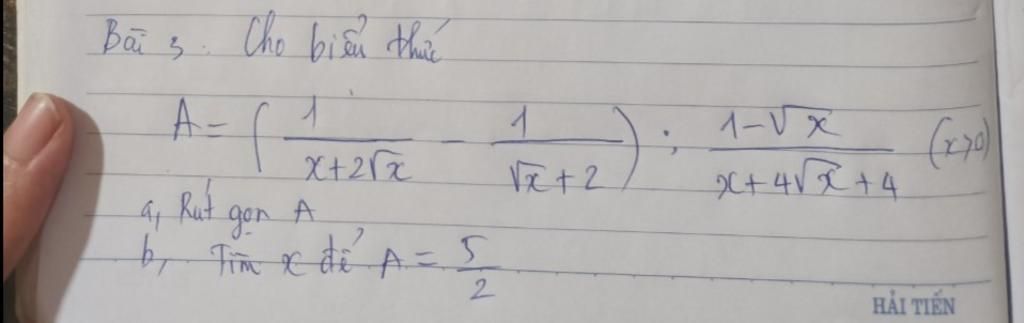 Bài 3. Cho biểu thức
A = ( 1/(x+2√x) - 1/(√x+2) ) : (1-√x)/(x+4√x+4) (x>0)
a, Rút gọn A
b, Tìm x để A = 5/2
HẢI TIẾN